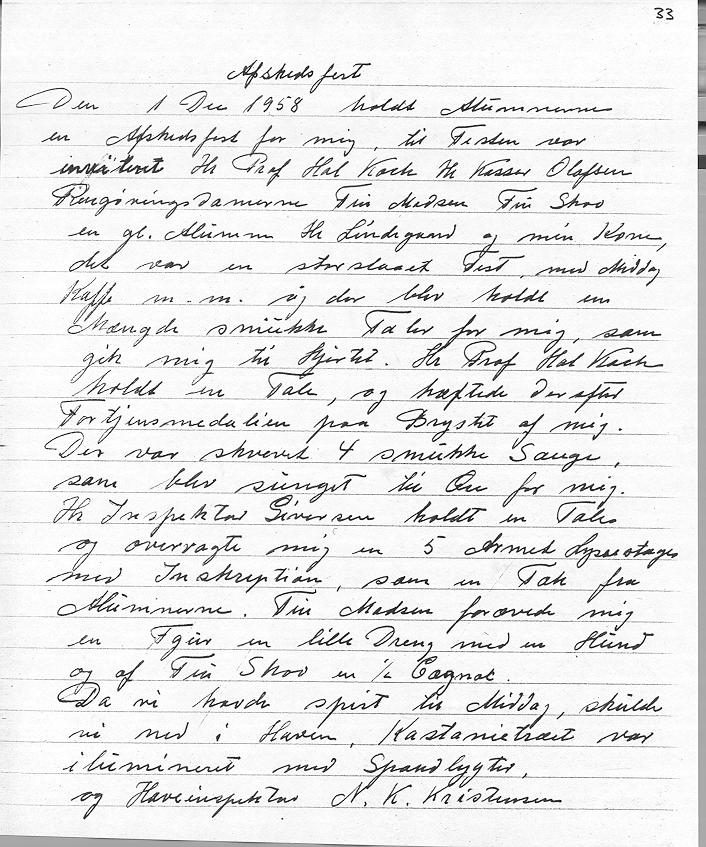 33
Afskedsfest
Den 1 Dec 1958 holdt Alumnerne
en Afskedsfest for mig, til Festen var
inviteret Hr Prof Hal Koch Hr Kasser Olafsen
Rengøringsdamerne Fru Madsen Fru Skov
en gl. Alumne Hr Lindegaard og min Kone,
det var en storslaaet Fest, med Middag
Kaffe m.m. og der blev holdt en
Mængde smukke Taler for mig, som
gik mig til Hjertet. Hr Prof Hal Koch
holdt en Tale, og hæftede derefter
Fortjensmedalien paa Brystet af mig.
Der var skrevet 4 smukke Sange,
som blev sunget til Ære for mig.
Hr Inspektør Giversen holdt en Tale
og overragte mig en 5 Armet Lysestage
med Inskreption, som en Tak fra
Alumnerne. Fru Madsen forærede mig
en Fgur en lille Dreng med en Hund
og af Fru Skov en 1/2 Cognac.
Da vi havde spist til Middag, skulde
vi ned i Haven, Kastanietræet var
ilumineret med Spandlygter,
og Haveinspektør N. K. Kristensen